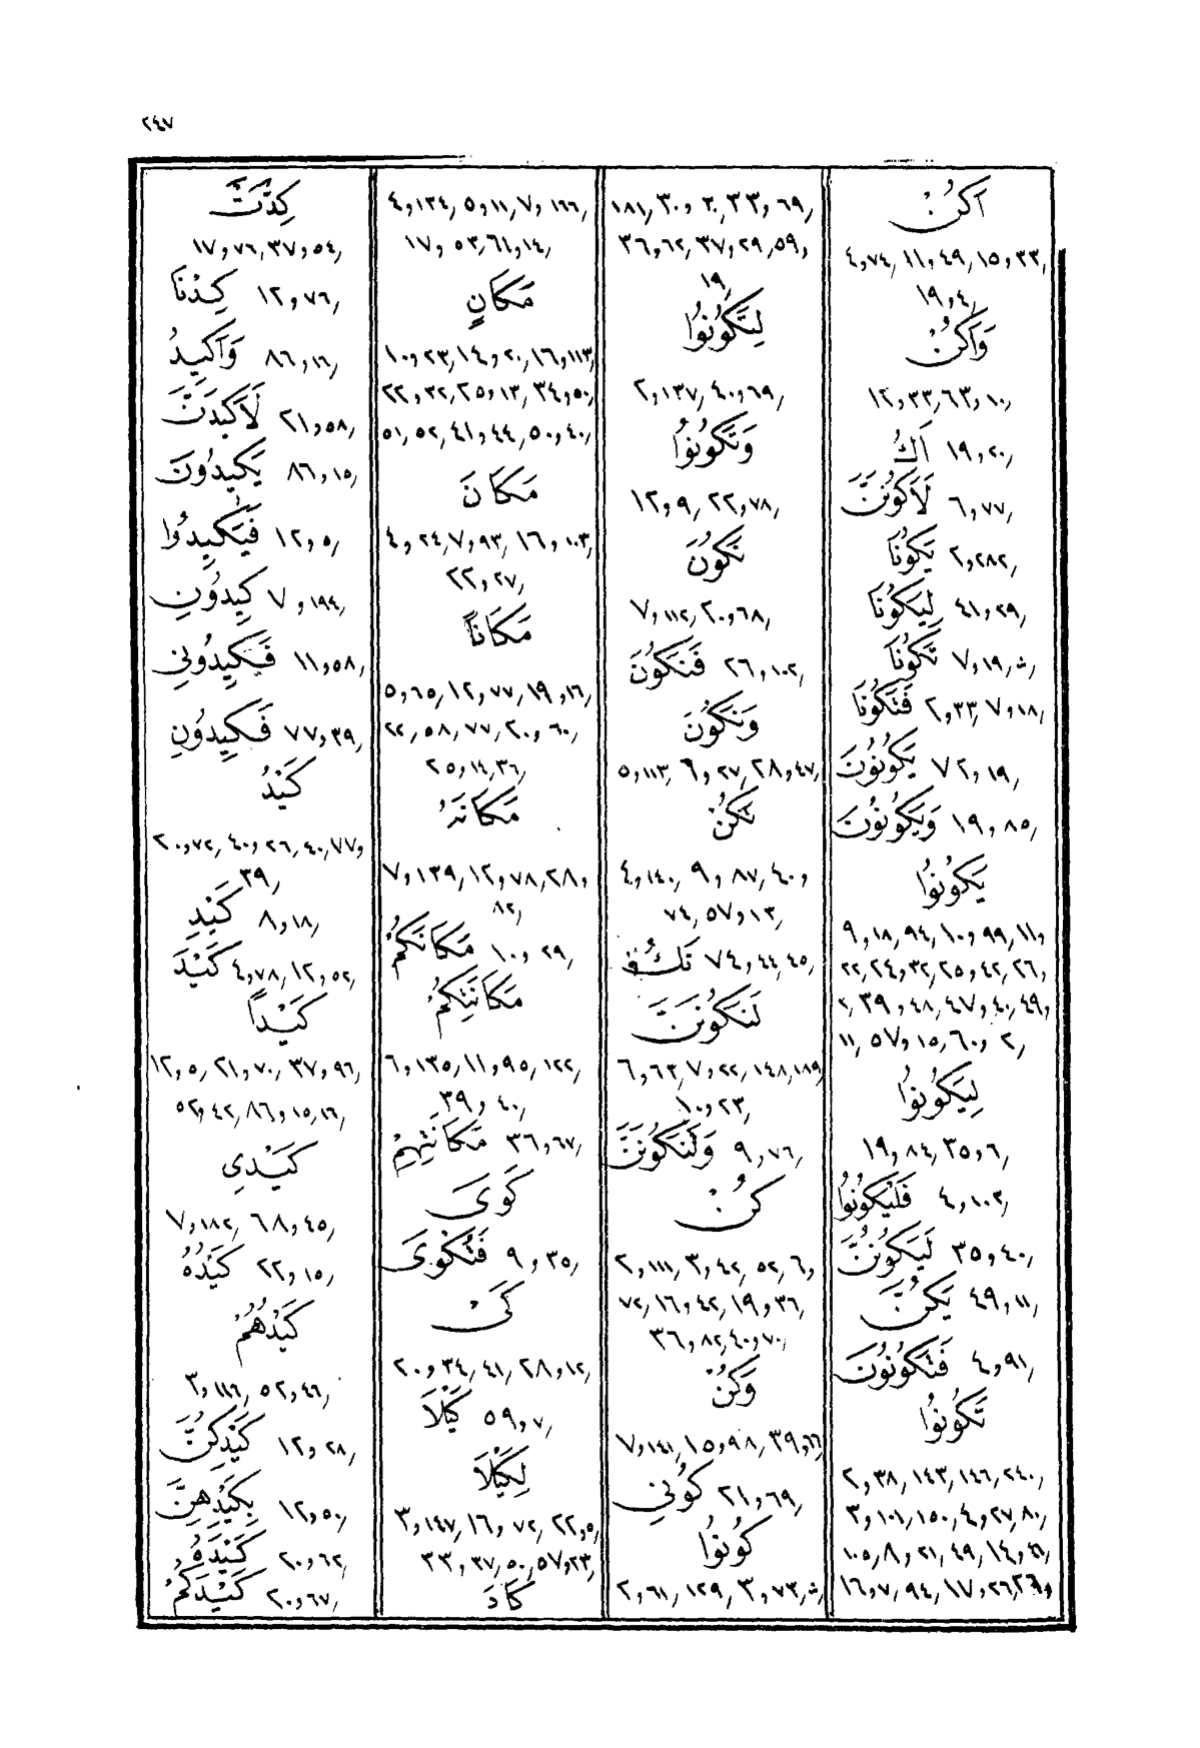 ٢٤٧
اَكُنْ
٤و٧٤, ١١و٤٩, ١٥و٣٣,
١٩و٤,
وَاَكُنْ
١٢و٣٣, ٦٣و١٠,
اَكُ ١٩و٢٠,
لَاَكُونَنَّ ٦و٧٧,
يَكُونَا ٢و٢٨٢,
لِيَكُونَا ٤١و٢٩,
تَكُونَا ٧و١٩,
فَتَكُونَا ٢و٣٣, ٧و١٨,
يَكُونُونَ ٧٢و١٩,
وَيَكُونُونَ ١٩و٨٥,
يَكُونُوا
٩و١٨, ٩٤, ١٠و٩٩, ١١و
٢٢, ٢٤و٣٢, ٢٥و٤٢, ٢٦و
٣٩و ٤٨, ٤٧و٤٠, ٤٩و
١١, ٥٧و١٥, ٦٠و ٢,
لِيَكُونُوا
١٩و٨٤, ٣٥و٦,
فَلْيَكُونُوا ٤و١٠٢,
لَيَكُونُنَّ ٣٥و٤٠,
يَكُنَّ ٤٩و١١,
فَتَكُونُونَ ٤و٩١,
تَكُونُوا
٢و٣٨, ١٤٣, ١٤٦, ٢٤٠,
٣و١٠١, ١٥٠, ٤و٢٧, ٨٠,
١٠٥, ٨و٢١, ٤٩, ١٤و٤٦,
١٦و٧, ٩٤, ١٧و٢٦, ٢٦و
١٨١, ٣٠و ٢٠, ٣٣و ٦٩,
٣٦و٦٢, ٣٧و٢٩, ٥٩و
١٩,
لِتَكُونُوا
٢و١٣٧, ٤٠و٦٩,
وَتَكُونُوا
١٢و٩, ٢٢و٧٨,
تَكُونَ
٧و١١٢, ٢٠و٦٨,
فَنَكُونَ ٢٦و١٠٢,
وَنَكُونَ
٥و١١٣, ٦و٢٧, ٢٨و٤٧,
نَكُنْ
٤و١٤٠, ٩و ٨٧, ٤٠و
٧٤, ٥٧و١٣,
نَكُ ٧٤و٤٤, ٤٥,
لَنَكُونَنَّ
٦و٦٣, ٧و٢٢, ١٤٨, ١٨٩,
١٠و٢٣,
وَلَنَكُونَنَّ ٩و٧٦,
كُنْ
٢و١١١, ٣و٤٢, ٥٢, ٦و
٧٢, ١٦و٤٢, ١٩و٣٦,
٣٦و٨٢, ٤٠و٧٠,
وَكُنْ
٧و١٤١, ١٥و٩٨, ٣٩و٦٦,
كُونِي ٢١و٦٩,
كُونُوا
٢و٦١, ١٢٩, ٣و٧٣,
٤و١٣٤, ٥و١١, ٧و١٦٦,
١٧و ٥٣, ٦١و١٤,
مَكَانٍ
١٠و٢٣, ١٤و٢٠, ١٦و١١٣,
٢٢و٣٢, ٢٥و١٣, ٣٤و٥٠,
٥١, ٥٢, ٤١و٤٤, ٥٠و٤٠,
مَكَانَ
٤و٢٤, ٧و٩٣, ١٦و١٠٣,
٢٢و٢٧,
مَكَاناً
٥و٦٥, ١٢و٧٧, ١٩و١٦,
٢٢, ٥٨, ٧٧, ٢٠و٦٠,
٢٥و١٤, ٣٦,
مَكَانَهُ
٧و١٣٩, ١٢و٧٨, ٢٨و
٨٢,
مَكَانَكُمْ ١٠و٢٩,
مَكَانَتِكُمْ
٦و١٣٥, ١١و٩٥, ١٢٢,
٣٩و٤٠,
مَكَانَتِهِمْ ٣٦و٦٧,
كَوَىَ
فَتُكْوَىَ ٩و٣٥,
كَىْ
٢٠و٣٤, ٤١, ٢٨و١٢,
كَيْلَا ٥٩و٧,
لِكَيْلَا
٣و١٤٧, ١٦و٧٢, ٢٢و٥,
٣٣و٣٧, ٥٠, ٥٧و٢٣,
كَادَ
كِدْتَّ
١٧و٧٦, ٣٧و٥٤,
كِدْنَا ١٢و٧٦,
وَاَكِيدُ ٨٦و١٦,
لَاَكِيدَنَّ ٢١و٥٨,
يَكِيدُونَ ٨٦و١٥,
فَيَكِيدُوا ١٢و٥,
كِيدُونِ ٧و١٩٤,
فَكِيدُونِي ١١و٥٨,
فَكِيدُونِ ٧٧و٣٩,
كَيْدُ
٢٠و٧٢, ٤٠و٢٦, ٤٠, ٧٧و
٣٩,
كَيْدِ ٨و١٨,
كَيْدَ ٤و٧٨, ١٢و٥٢,
كَيْداً
١٢و٥, ٢١و٧٠, ٣٧و٩٦,
٥٢و٤٢, ٨٦و١٥, ١٦,
كَيْدِي
٧و١٨٢, ٦٨و٤٥,
كَيْدُهُ ٢٢و١٥,
كَيْدُهُمْ
٣و١١٦, ٥٢و٤٦,
كَيْدِكُنَّ ١٢و٢٨,
بِكَيْدِهِنَّ ١٢و٥٠,
كَيْدَهُ ٢٠و٦٢,
كَيْدَكُمْ ٢٠و٦٧,